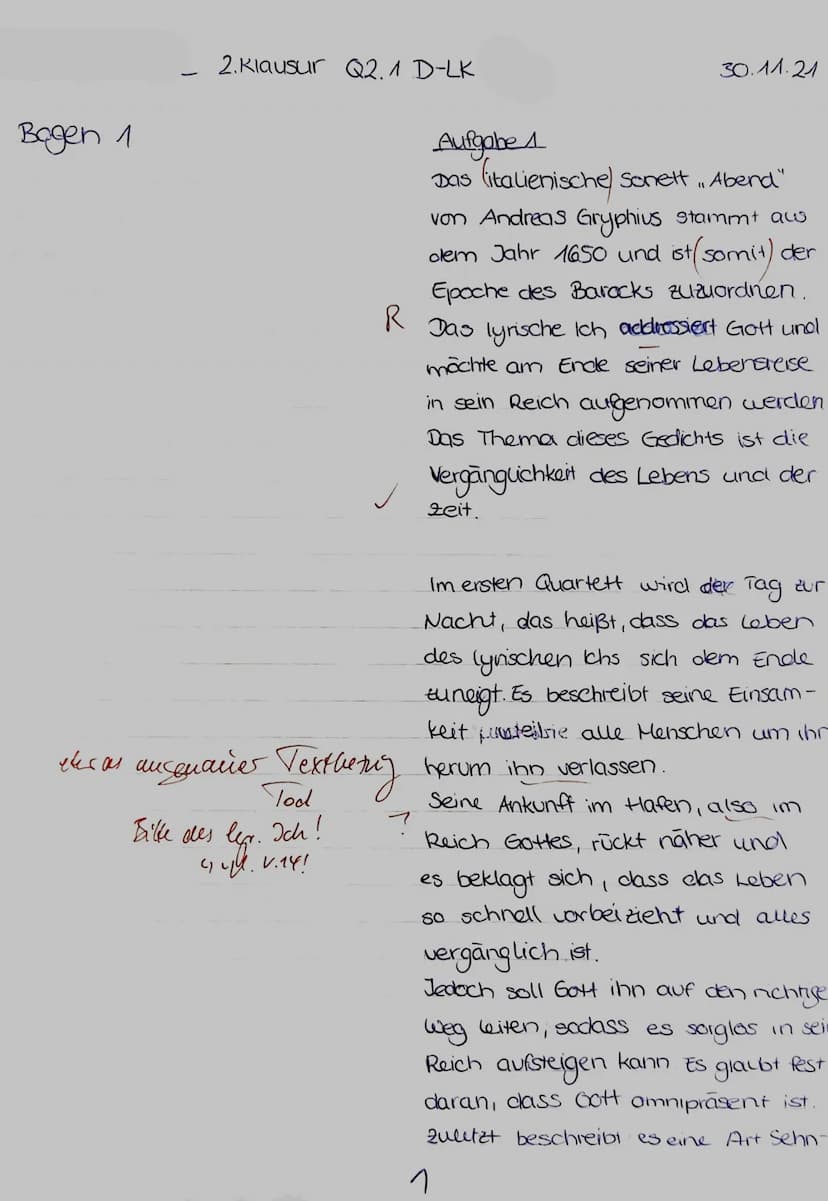 – 2. Klausur Q2.1 D-LK 30.11.21
Bogen 1
Aufgabe 1
Das (italienische) Sonett „Abend"
von Andreas Gryphius stammt aus
dem Jahr 1650 und ist (somit) der
Epoche des Barocks zuzuordnen.
R
Das lyrische Ich addressiert Gott und
möchte am Ende seiner Lebensreise
in sein Reich aufgenommen werden
Das Thema dieses Gedichts ist die
Vergänglichkeit des Lebens und der
✓
Zeit.
Im ersten Quartett wird der Tag zur
Nacht, das heißt, dass das Leben
des lyrischen Ichs sich dem Ende
zuneigt. Es beschreibt seine Einsam-
keit alle Menschen um ihn
herum ihn verlassen.
Textbezug
Tod
Bitte des lyr. Ich!
↳ vgl. V. 14!
?
Seine Ankunft im Hafen, also im
Reich Gottes, rückt näher und
es beklagt sich, dass das Leben
so schnell vorbeizieht und alles
vergänglich ist.
Jedoch soll Gott ihn auf den richtige
Weg leiten, sodass es sorglos in sei
Reich aufsteigen kann Es glaubt fest
daran, dass Gott omnipräsent ist.
Zuletzt beschreibt es eine Art Sehn-
1